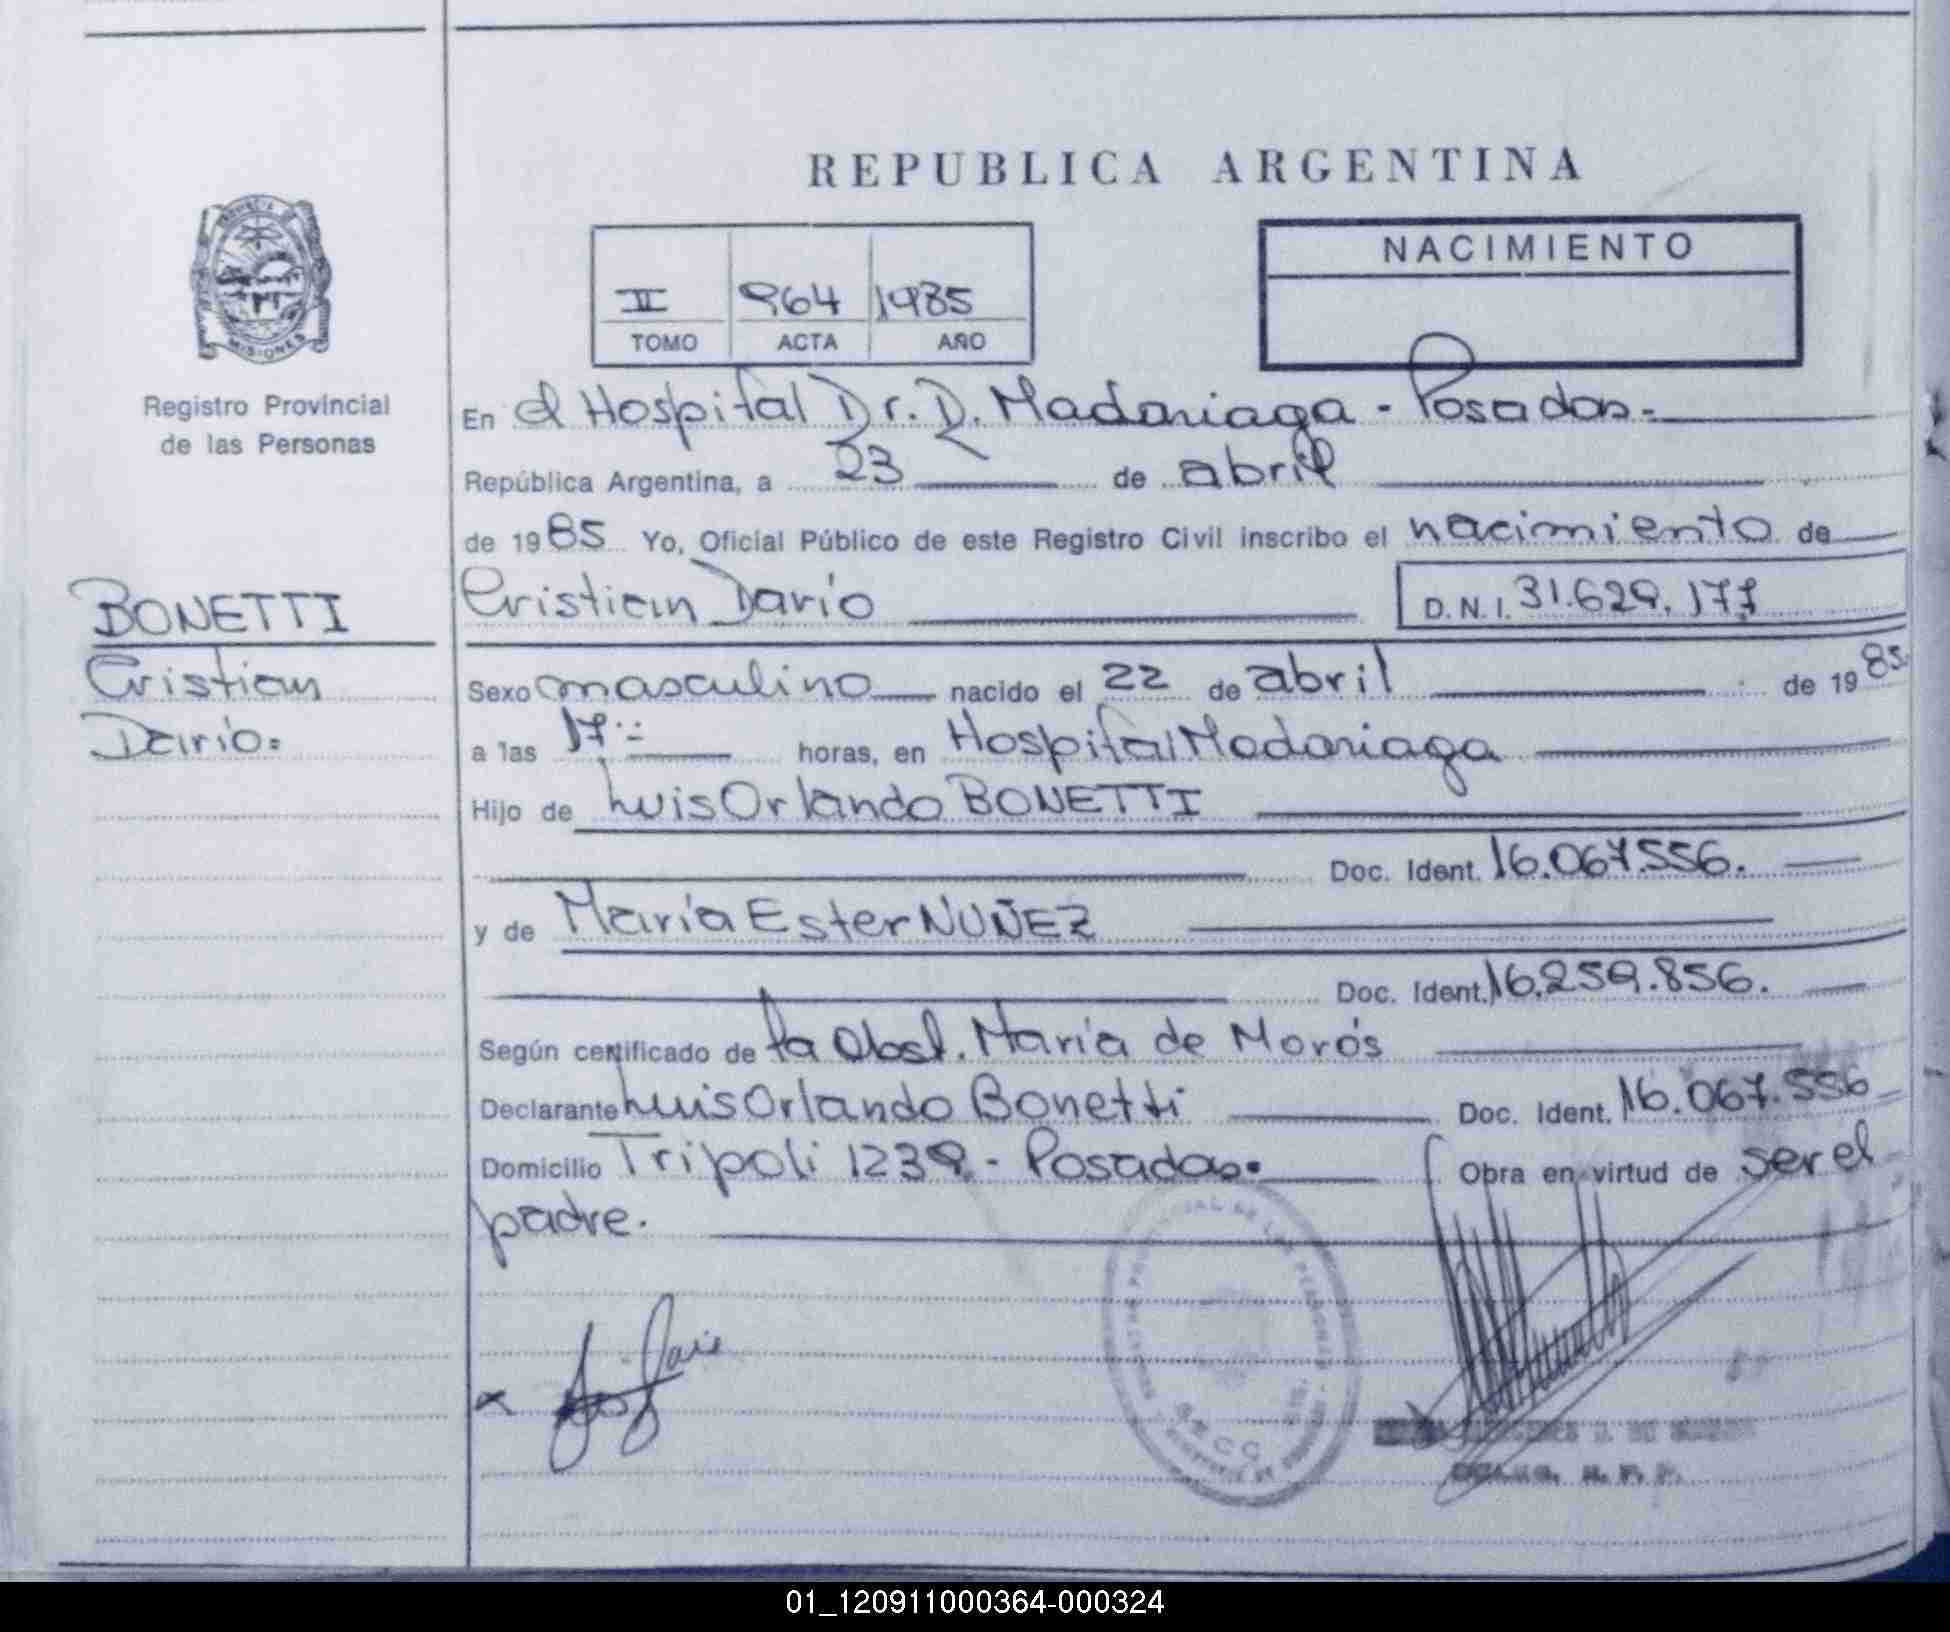 REPUBLICA ARGENTINA
NACIMIENTO
II 964 1985
TOMO ACTA AÑO
MISIONES
Registro Provincial
de las Personas
En el Hospital Dr. R. Madariaga - Posadas.-
República Argentina, a 23 de abril
de 1985 Yo, Oficial Público de este Registro Civil inscribo el nacimiento de
BONETTI
Cristian
Darío.
Cristian Darío D.N.I. 31.629.177
Sexo masculino nacido el 22 de abril de 1985
a las 17.: horas, en Hospital Madariaga
Hijo de Luis Orlando BONETTI
Doc. Ident. 16.067.556.
y de María Ester NUÑEZ
Doc. Ident. 16.259.856.
Según certificado de la Obst. María de Morós
Declarante Luis Orlando Bonetti Doc. Ident. 16.067.556
Domicilio Tripoli 1239.- Posadas. Obra en virtud de ser el
padre.
01_120911000364-000324